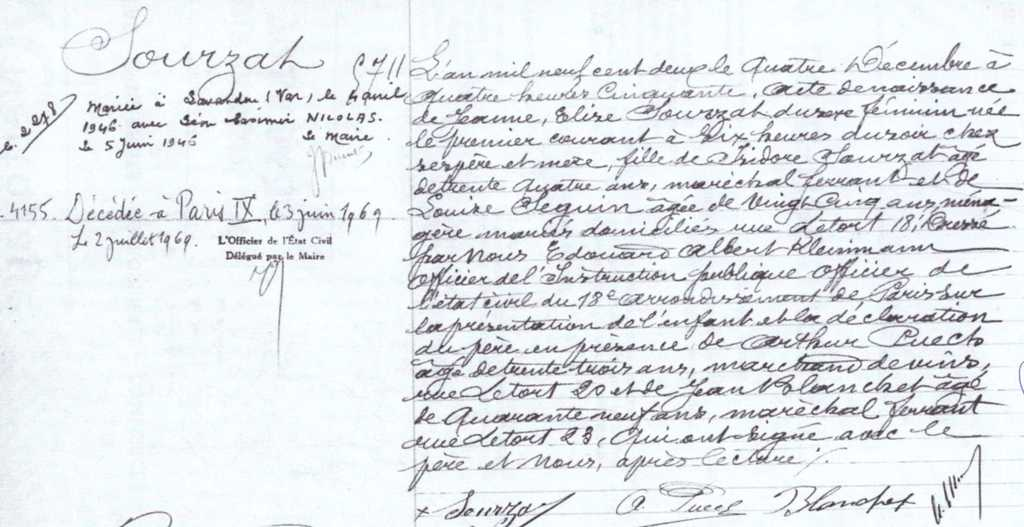 Sourzat
Mariée à Lavandou (Var), le 4 avril
1946 avec Léon NICOLAS.
le 5 juin 1946 le Maire
4155. Décédée à Paris IX, le 3 juin 1969
Le 2 juillet 1969.
L'Officier de l'État Civil
Délégué par le Maire
L'an mil neuf cent deux le Quatre Décembre à
Quatre heures Cinquante, acte de naissance
de Jeanne, Elise Sourzat du sexe féminin née
le premier courant à Six heures du soir chez
ses père et mère, fille de Isidore Sourzat âgé
de trente quatre ans, maréchal ferrant et de
Louise Seguin âgée de Vingt Cinq ans, ména-
gère mariés domiciliés rue Letort 18; Dressé
par Nous Edouard Albert Kleinmann
Officier de l'Instruction publique Officier de
l'état civil du 18e arrondissement de Paris sur
la présentation de l'enfant et la déclaration
du père en présence de Arthur Puech
âgé de trente trois ans, marchand de vins,
rue Letort 20 et de Jean Blanchet âgé
de Quarante neuf ans, maréchal ferrant
rue Letort 23, Qui ont signé avec le
père et Nous, après lecture ./.
Sourza A. Puech Blanchet